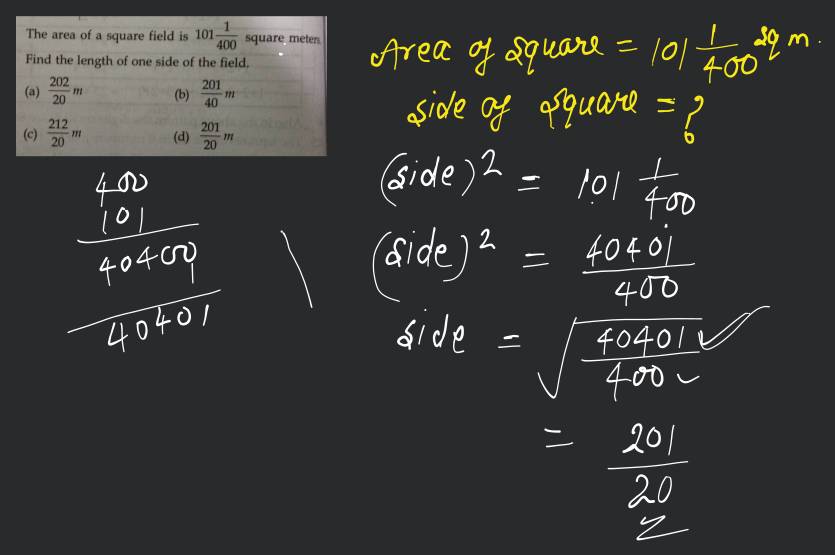 The area of a square field is 101 1/400 square meters
Find the length of one side of the field.
(a) 202/20 m
(b) 201/40 m
(c) 212/20 m
(d) 201/20 m
Area of square = 101 1/400 sq m.
side of square = ?
400
101
40400
1
40401
(side)2 = 101 1/400
(side)2 = 40401/400
side = √40401/400
= 201/20